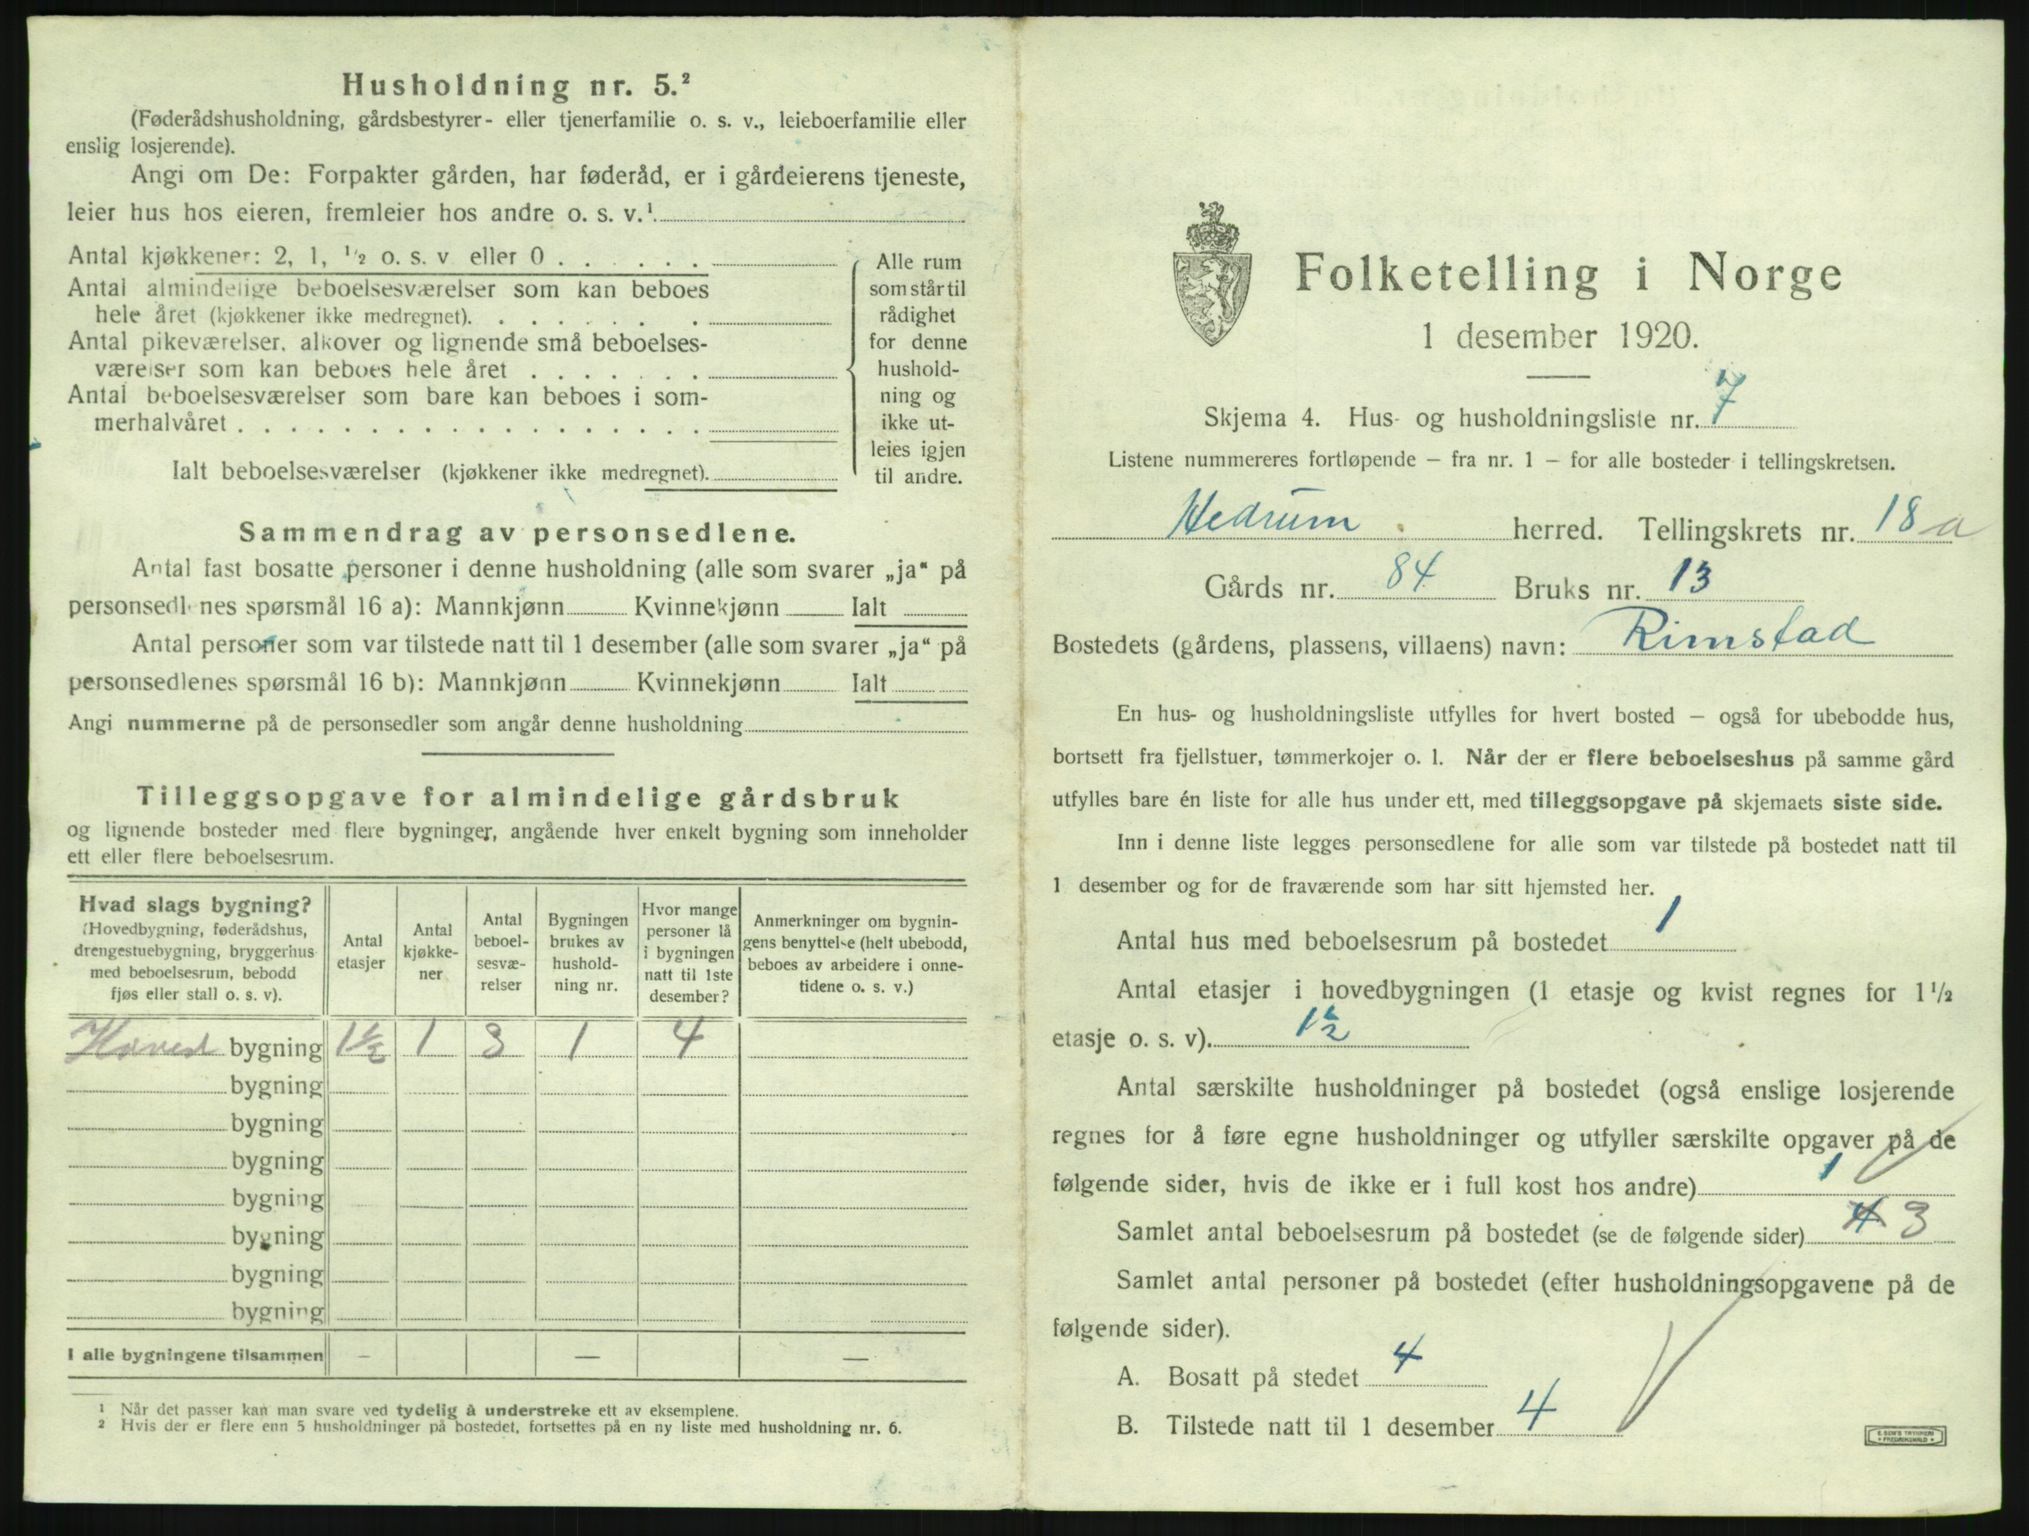 Husholdning nr. 5.²
(Føderådshusholdning, gårdsbestyrer- eller tjenerfamilie o. s. v., leieboerfamilie eller
enslig losjerende).
Angi om De: Forpakter gården, har føderåd, er i gårdeierens tjeneste,
leier hus hos eieren, fremleier hos andre o. s. v.¹
Antal kjøkkener: 2, 1, ½ o. s. v eller 0
Antal almindelige beboelsesværelser som kan beboes
hele året (kjøkkener ikke medregnet).
Antal pikeværelser, alkover og lignende små beboelses-
værelser som kan beboes hele året
Antal beboelsesværelser som bare kan beboes i som-
merhalvåret
Ialt beboelsesværelser (kjøkkener ikke medregnet).
Alle rum
som står til
rådighet
for denne
hushold-
ning og
ikke ut-
leies igjen
til andre.
Sammendrag av personsedlene.
Antal fast bosatte personer i denne husholdning (alle som svarer „ja“ på
personsedlenes spørsmål 16 a): Mannkjønn Kvinnekjønn Ialt
Antal personer som var tilstede natt til 1 desember (alle som svarer „ja“ på
personsedlenes spørsmål 16 b): Mannkjønn Kvinnekjønn Ialt
Angi nummerne på de personsedler som angår denne husholdning
Tilleggsopgave for almindelige gårdsbruk
og lignende bosteder med flere bygninger, angående hver enkelt bygning som inneholder
ett eller flere beboelsesrum.
Hvad slags bygning?
(Hovedbygning, føderådshus,
drengestuebygning, bryggerhus
med beboelsesrum, bebodd
fjøs eller stall o. s. v).
Antal
etasjer
Antal
kjøkke-
ner
Antal
beboel-
sesvæ-
relser
Bygningen
brukes av
hushold-
ning nr.
Hvor mange
personer lå
i bygningen
natt til 1ste
desember?
Anmerkninger om bygnin-
gens benyttelse (helt ubebodd,
beboes av arbeidere i onne-
tidene o. s. v.)
Hoved bygning 1½ 1 3 1 4
bygning
bygning
bygning
bygning
bygning
bygning
bygning
I alle bygningene tilsammen – — —
¹ Når det passer kan man svare ved tydelig å understreke ett av eksemplene.
² Hvis der er flere enn 5 husholdninger på bostedet, fortsettes på en ny liste med husholdning nr. 6.
Folketelling i Norge
1 desember 1920.
Skjema 4. Hus- og husholdningsliste nr. 7
Listene nummereres fortløpende – fra nr. 1 – for alle bosteder i tellingskretsen.
Hedrum herred. Tellingskrets nr. 18 a
Gårds nr. 84 Bruks nr. 13
Bostedets (gårdens, plassens, villaens) navn: Rimstad
En hus- og husholdningsliste utfylles for hvert bosted – også for ubebodde hus,
bortsett fra fjellstuer, tømmerkojer o. l. Når der er flere beboelseshus på samme gård
utfylles bare én liste for alle hus under ett, med tilleggsopgave på skjemaets siste side.
Inn i denne liste legges personsedlene for alle som var tilstede på bostedet natt til
1 desember og for de fraværende som har sitt hjemsted her.
Antal hus med beboelsesrum på bostedet 1
Antal etasjer i hovedbygningen (1 etasje og kvist regnes for 1½
etasje o. s. v). 1½
Antal særskilte husholdninger på bostedet (også enslige losjerende
regnes for å føre egne husholdninger og utfyller særskilte opgaver på de
følgende sider, hvis de ikke er i full kost hos andre) 1
Samlet antal beboelsesrum på bostedet (se de følgende sider) 4 3
Samlet antal personer på bostedet (efter husholdningsopgavene på de
følgende sider).
A. Bosatt på stedet 4
B. Tilstede natt til 1 desember 4